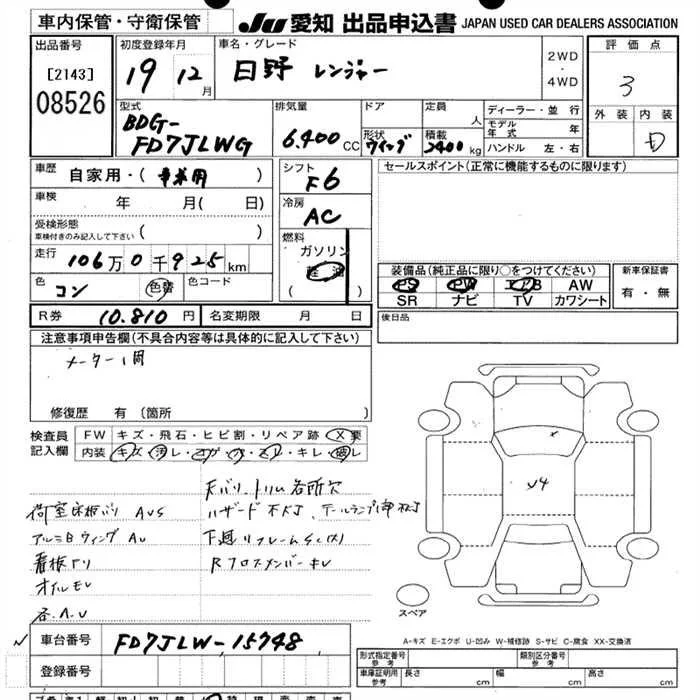 車内保管・守衛保管
JU 愛知 出品申込書 JAPAN USED CAR DEALERS ASSOCIATION
出品番号
[2143]
08526
初度登録年月
19 12月
車名・グレード
日野 レンジャー
2WD
・
4WD
評価点
3
外装 内装
D
型式
BDG-
FD7JLWG
排気量
6,400 CC
ドア
形状
ウイング
定員
人
積載
2400 kg
ディーラー・並行
モデル年式 年
ハンドル 左・右
車歴
自家用・(事業用)
車検
年 月(日)
受検形態
車検付きのみ記入して下さい
走行
106万0千925km
色
コン
色替
色コード
シフト
F6
冷房
AC
燃料
ガソリン
軽油
( )
セールスポイント(正常に機能するものに限ります)
装備品(純正品に限り○をつけてください)
PS PW エアB AW
SR ナビ TV カワシート
新車保証書
有・無
R券 10,810円
名変期限 月 日
後日品
注意事項申告欄(不具合内容等は具体的に記入して下さい)
メーター1周
修復歴 有(箇所
検査員
記入欄
FW キズ・飛石・ヒビ割・リペア跡 X要
内装 キズ・汚レ・コゲ・穴・スレ・キレ・破レ
天バリ、トリム各所欠
荷室床板バリ AUS
ハザード不灯、テールランプ1部不灯
アルミBウィング AU
下廻リフレームSC(大)
看板アリ
RクロスメンバーキレV
オイルモレ
各AU
y4
スペア
A-キズ E-エクボ U-凹み W-補修跡 S-サビ C-腐食 XX-交換済
車台番号
FD7JLW-15748
登録番号
形式指定番号
参考
類別区分番号
参考
車庫証明用
参考
長さ cm
幅 cm
高さ cm